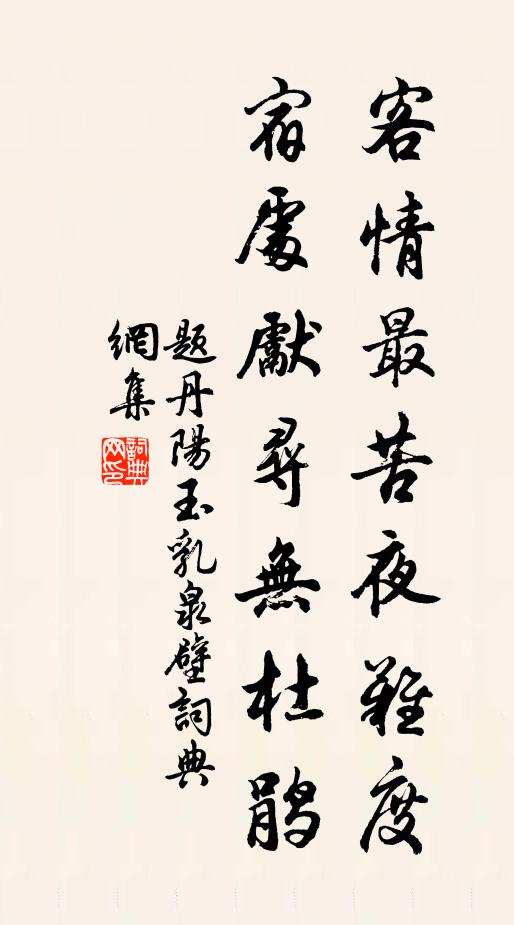 客情最苦夜難度
宿處獻尋無杜鵑
題丹陽玉乳泉壁詞典
網集
詞典
网印